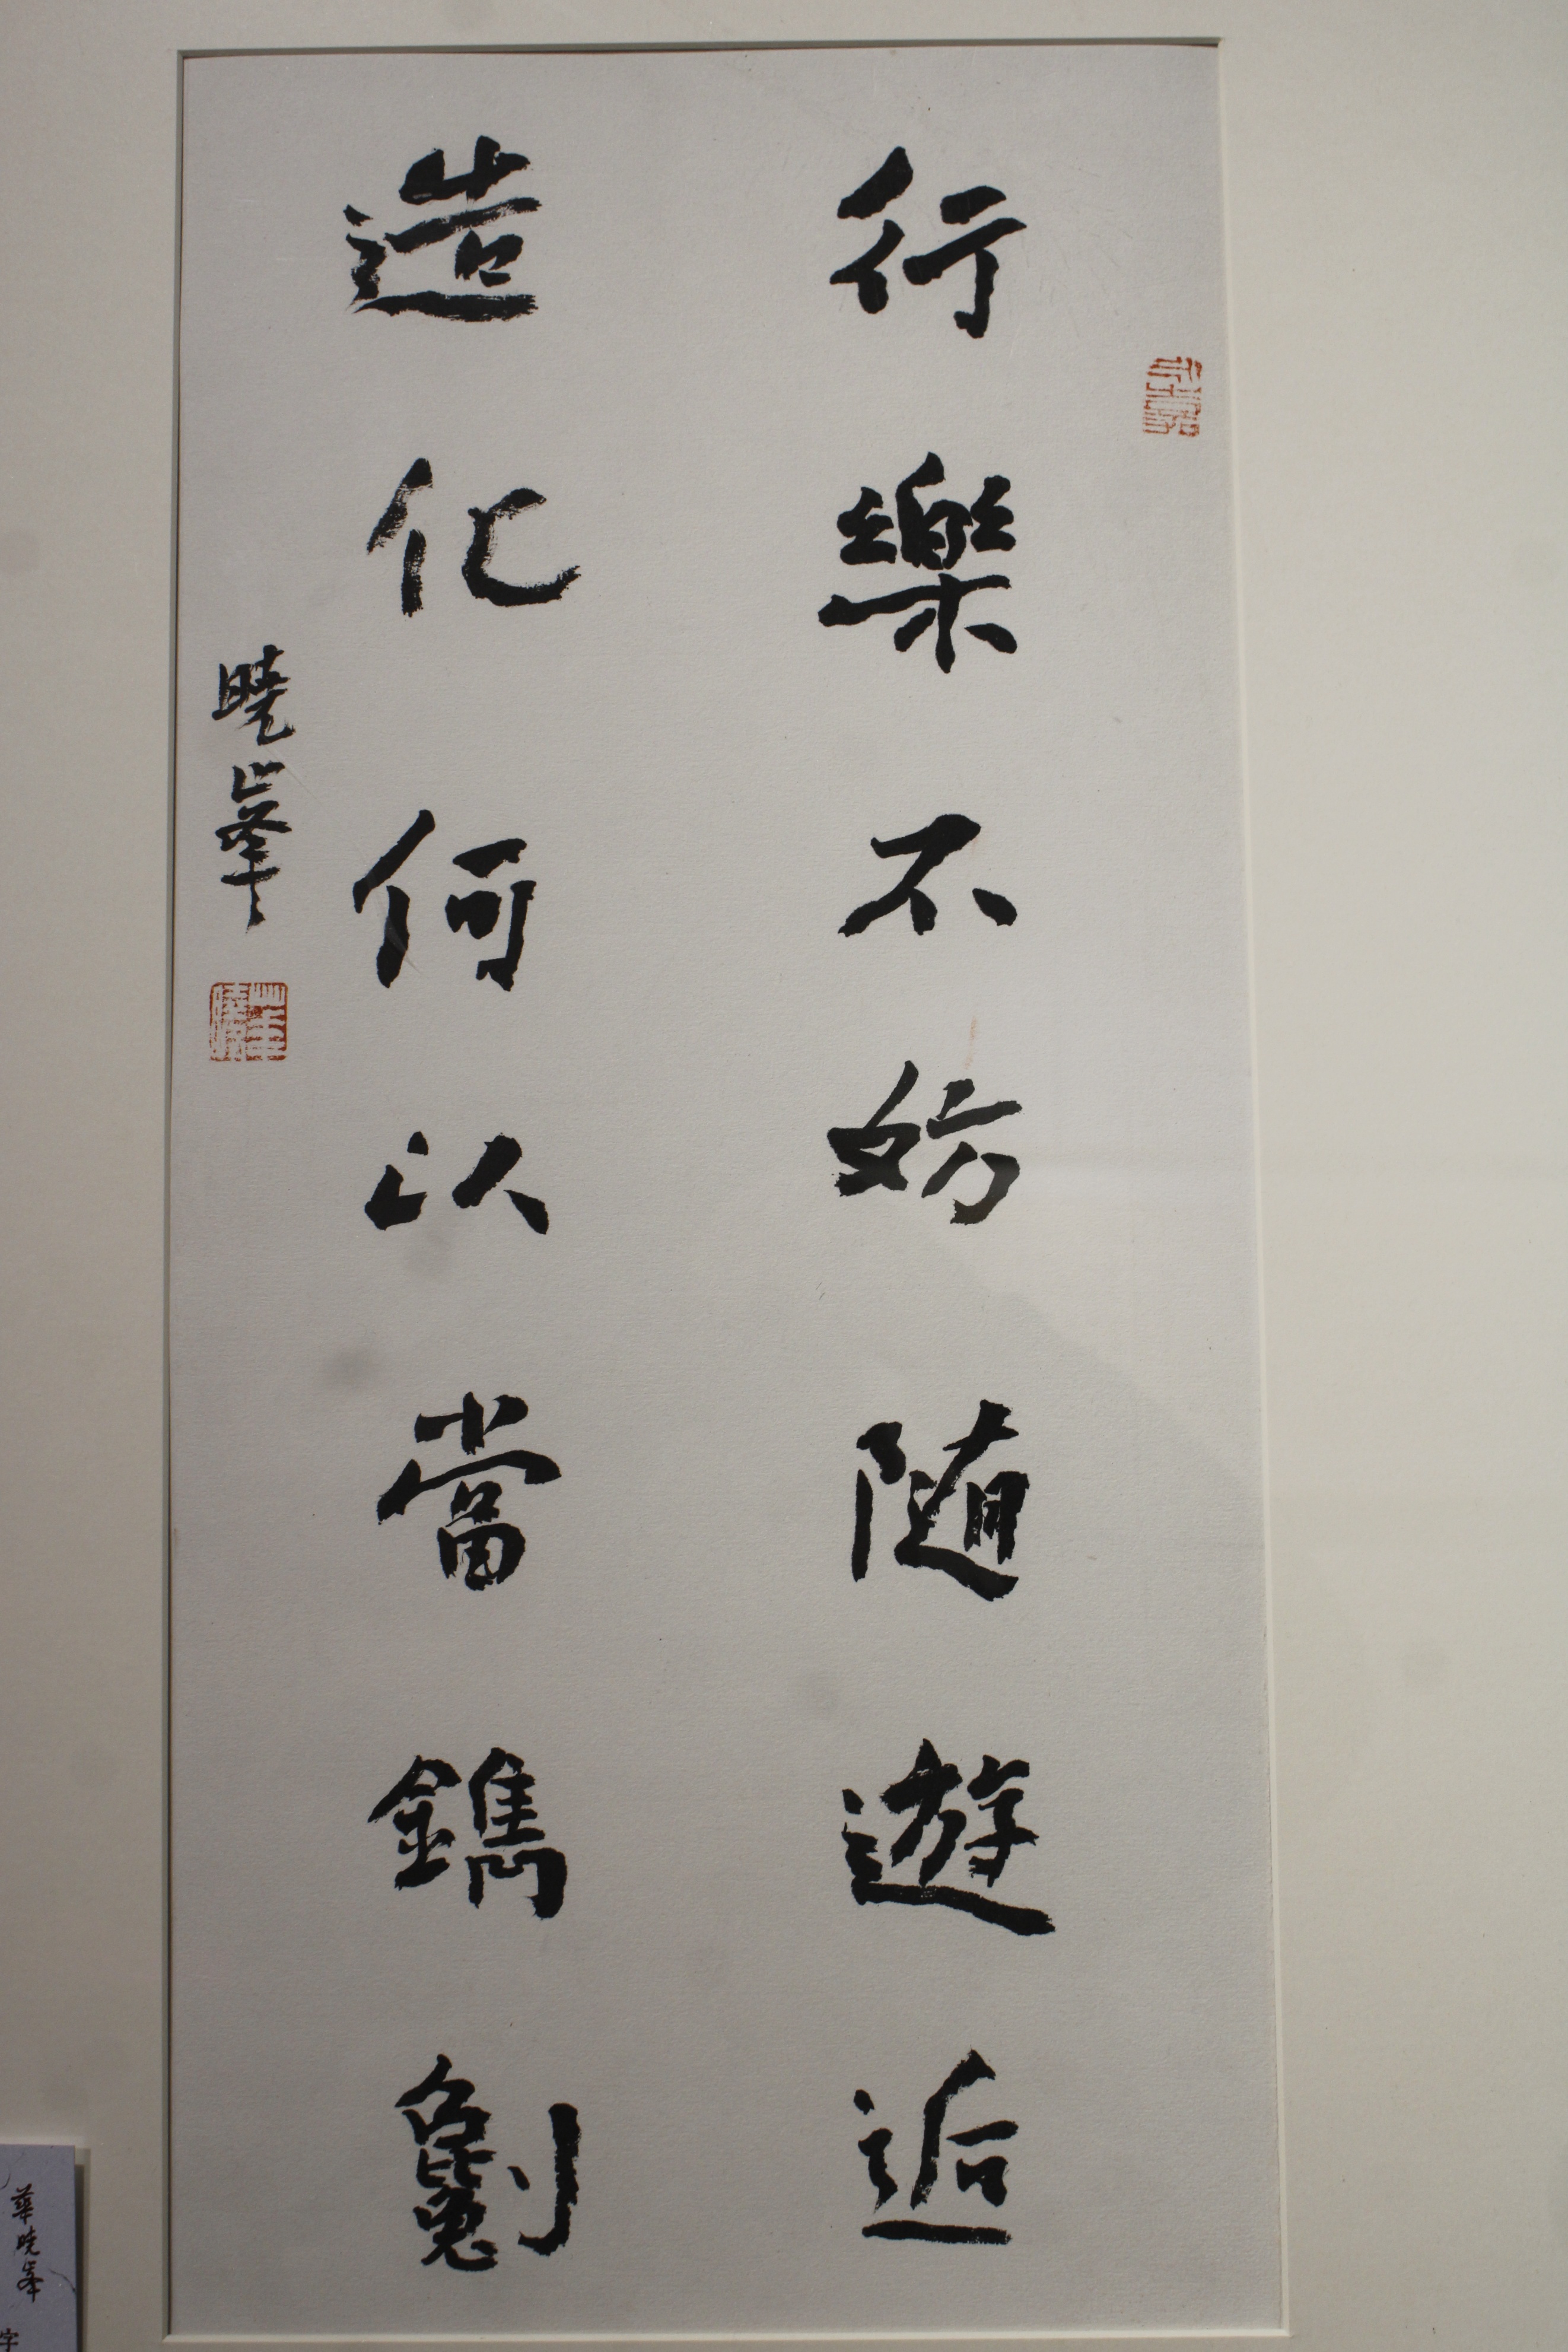 行樂不妨隨遊逅
造化何以當鐫劖
曉峯
華曉峯
字